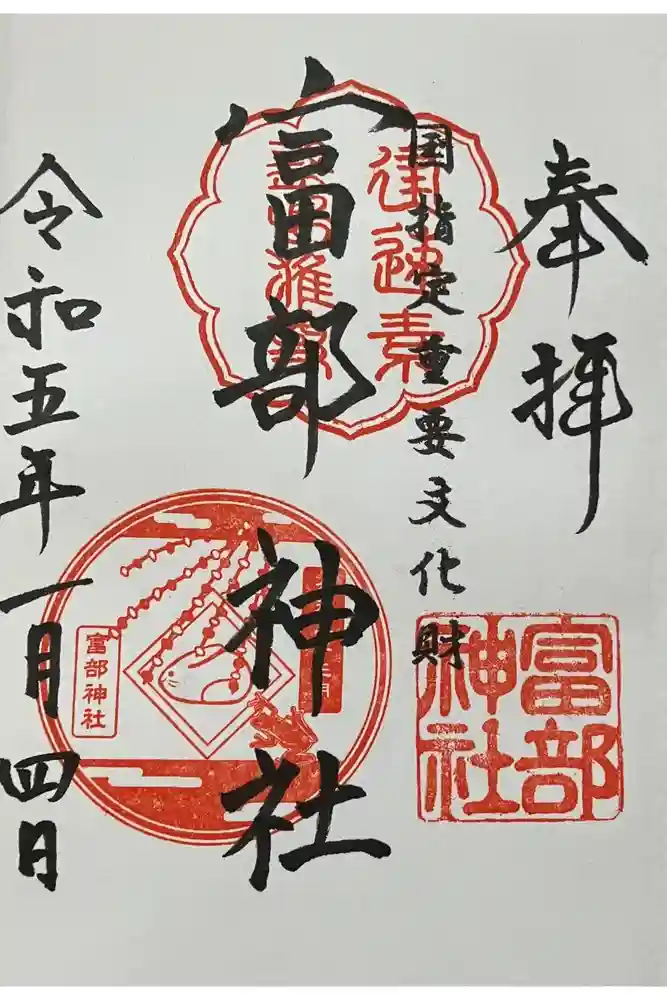 奉拝
国指定重要文化財
富部神社
令和五年一月四日
富部
神社
富部神社